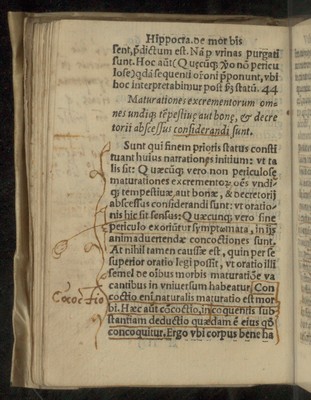 Hippocra. de morbis
sent, p̃dictum est. Nã p vrinas purgati
sunt. Hoc aũt (Quęcũq; ꝟo nõ pericu
lose) qdã sequenti orõni p̃ponunt, vbi
hoc interpretabimur post ꝑs statũ. 44
Maturationes excrementorum om-
nes undiq; tẽpestiuę aut bonę, & decre
torii abscessus considerandi sunt.
Sunt qui finem prioris status consti
tuant huius narrationes initium: vt ta
lis sit: Quæcũq; vero non periculose
maturationes excremento℞ oẽs vndi-
q; tempestiuæ, aut boniæ, & decretorij
abscessus considerandi sunt: vt oratio-
nis hic sit sensus: Quæcunq; vero sine
periculo exoriũtur symptomata, in ijs
animaduertendæ concoctiones sunt.
At nihil tamen caussæ est, quin per se
superior oratio legi possit, vt oratio illi
semel de oĩbus morbis maturatiõe va
cantibus in vniuersum habeatur. Con
coctio enĩ naturalis maturatio est mor
bi. Hæc aut cõcoctio, in coquentis sub
stantiam deductio quædam ẽ eius qđ
concoquitur. Ergo vbi corpus bene ha
Cõcoctio